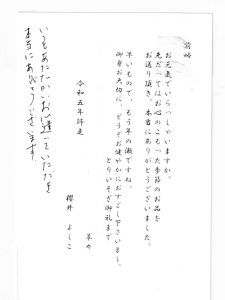 前略
お元気でいらっしゃいますか。
先だってはお心のこもった季節のお品を
お送り頂き、本当にありがとうございました。
早いもので、もう年の瀬ですね。
御身お大切に、どうぞお健やかにおすごし下さいまし。
とりいそぎ御礼まで
草々
令和五年師走
櫻井 よしこ
いつもあたたかいお心遣いをいただき
本当にありがとうございます。